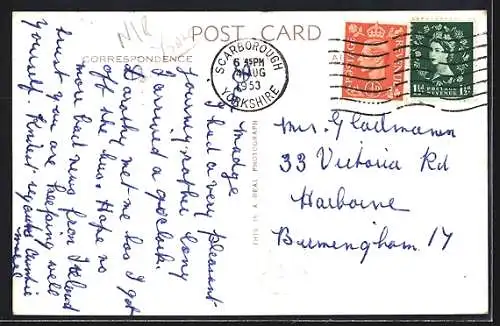 N/R
POST CARD
CORRESPONDENCE
SCARBOROUGH
6 45PM
AUG
1953
YORKSHIRE
POSTAGE
REVENUE
1½D
1½D
Madge
I had a very pleasant
journey, rather long
I arrived 9 o'clock.
Dorothy met me has I got
off the bus. Hope no
more bad news from Ireland
trust you are keeping well
yourself. Kindest regards Auntie
THIS IS A REAL PHOTOGRAPH
Mrs. Gladmann
33 Victoria Rd
Harborne
Birmingham 17